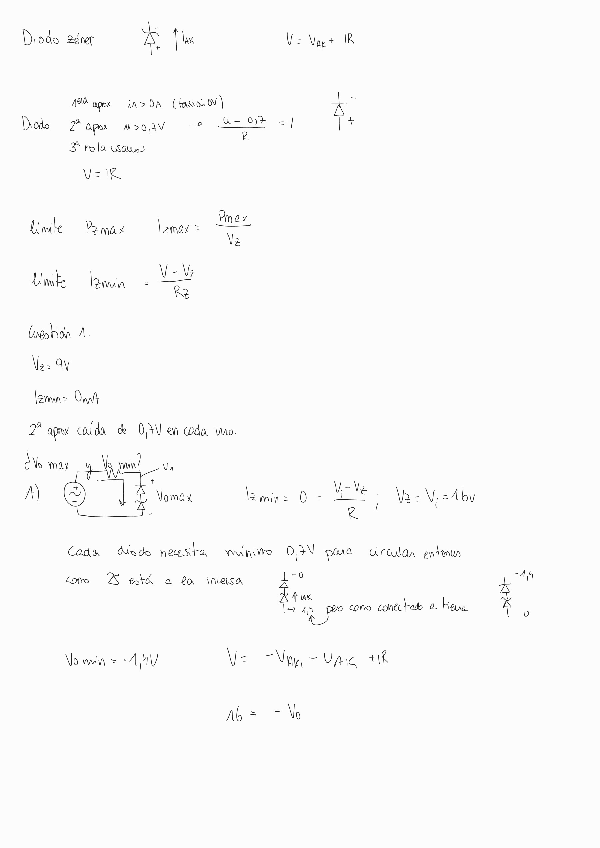 Diodo zéner ↑ I_AK V = V_AK + IR
1era aprox
Diodo 2ª aprox u > 0,7V u - 0,7 / R = I
3ª no la usamos
V = IR
límite Pz max Izmax = Pmax / Vz
límite Izmin = V - Vz / Rz
Cuestión 1.
Vz = 9V
Izmin = 0mA
2ª aprox caída de 0,7V en cada uno.
¿Vo max y Vo min?
1) Vo max Iz min = 0 = Vi - Vz / R ; Vz = Vi = 16V
Cada diodo necesita mínimo 0,7V para circular entonces
como está a la inversa pero como conectado a tierra
-1,4
0
Vo min = -1,4V V = - V_AK - V_AK + IR
16 = - Vo